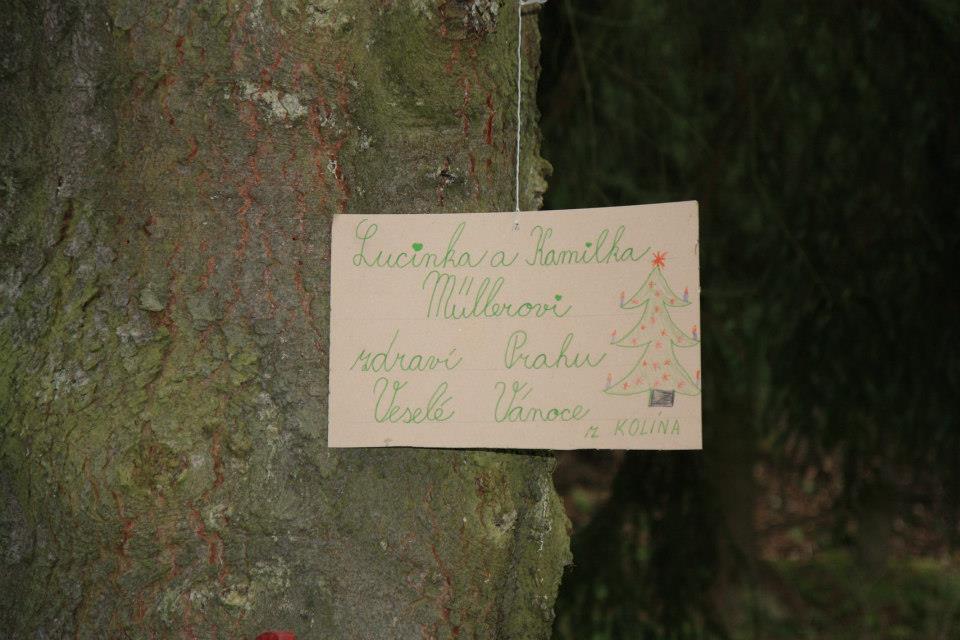 Lucinka a Kamilka
Müllerovi
zdraví Prahu
Veselé Vánoce
z KOLÍNA